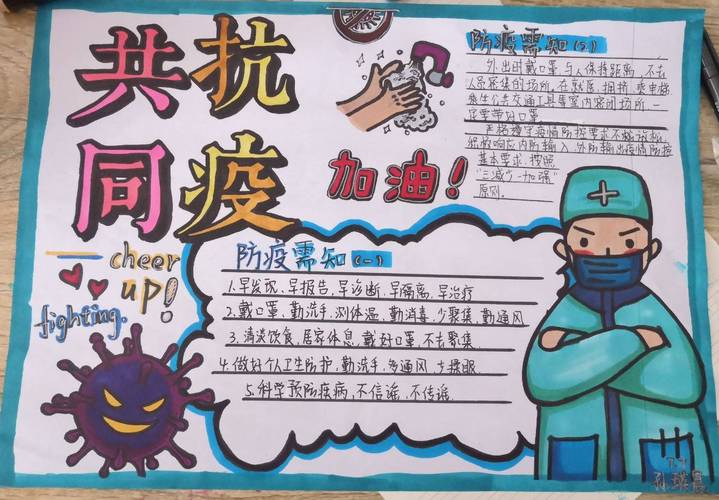 共抗
同疫
加油！
cheer
up!
fighting.
防疫需知(2)
外出时戴口罩与人保持距离，不去
人员聚集的场所，在就座、拥挤、乘电梯
乘坐公共交通工具等室内密闭场所一
定要带好口罩
严格遵守疫情防控要求不
基本要求，按照
"三减少一加强"
原则。
防疫需知(一)
1.早发现、早报告、早诊断、早隔离、早治疗
2.戴口罩、勤洗手、测体温、勤消毒、少聚集、勤通风
3.清淡饮食、居家休息、戴好口罩、不去聚集。
4.做好个人卫生防护、勤洗手、多通风、少揉眼.
5.科学预防疾病、不信谣、不传谣.